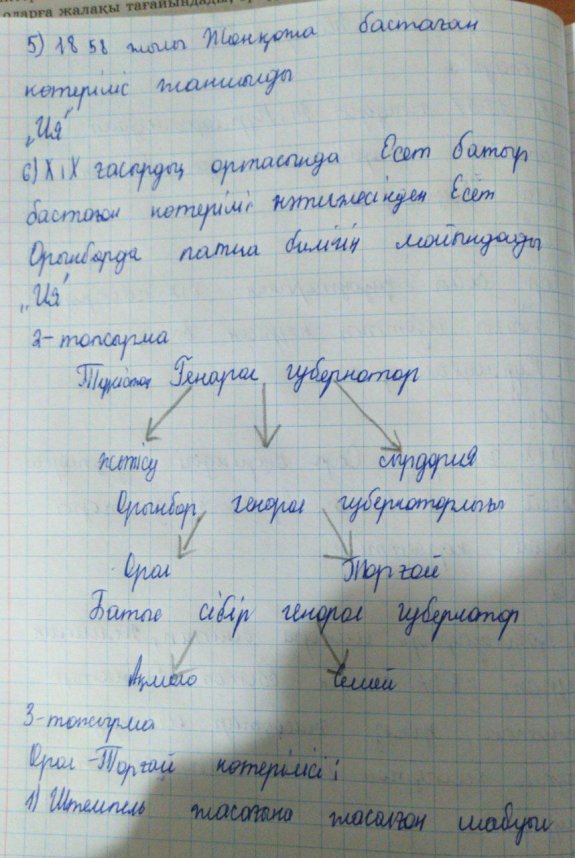 оларға жалақы тағайындады,
5) 1858 жылы Жанқожа бастаған
көтеріліс жанышылды
„Ия"
6) XIX ғасырдың ортасында Есет батыр
бастаған көтеріліс нәтижесінден Есет
Орынборда патша билігін мойындады
„Ия"
2-тапсырма
Түркістан Генарал губернатор
жетісу сырдария
Орынбор генарал губернаторлығы
Орал Торғай
Батыс сібір генарал губернатор
Ақмола Семей
3-тапсырма
Орал-Торғай көтерілісі;
1) Штемпель жасағына жасалған шабуыл